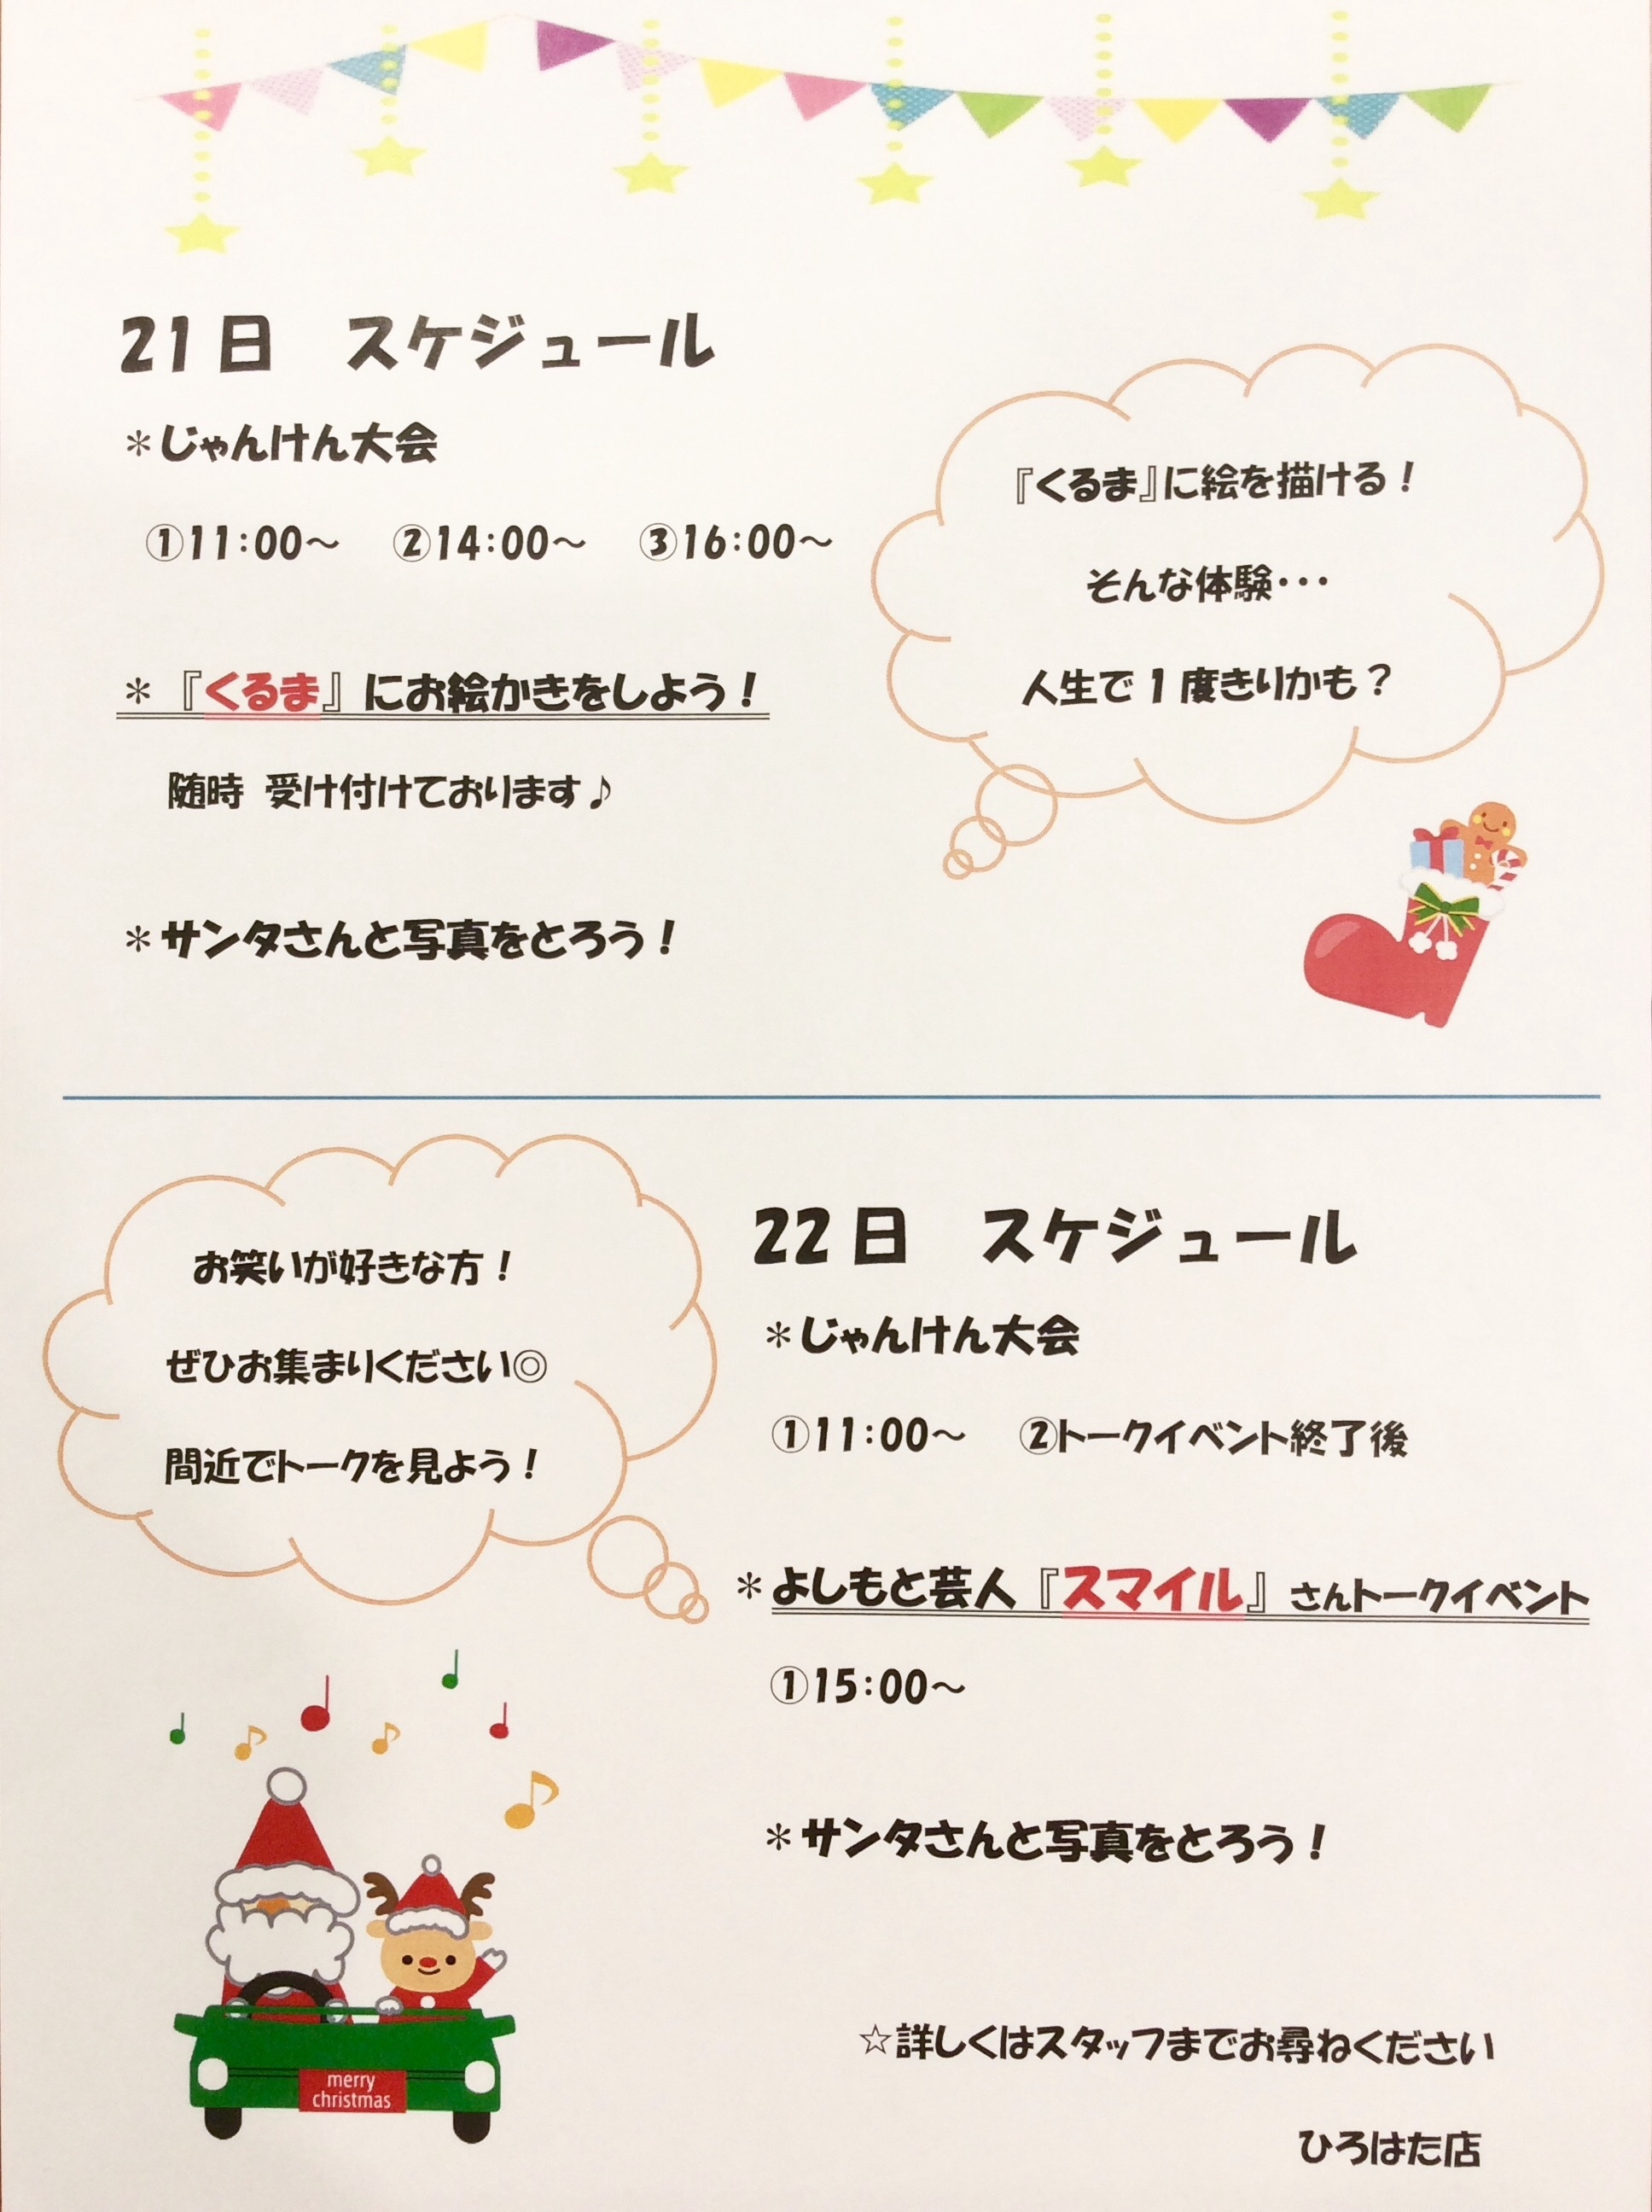 21日　スケジュール
＊じゃんけん大会
①11:00～　②14:00～　③16:00～
＊『くるま』にお絵かきをしよう！
随時 受け付けております♪
＊サンタさんと写真をとろう！
『くるま』に絵を描ける！
そんな体験・・・
人生で1度きりかも？
お笑いが好きな方！
ぜひお集まりください◎
間近でトークを見よう！
22日　スケジュール
＊じゃんけん大会
①11:00～　②トークイベント終了後
＊よしもと芸人『スマイル』さんトークイベント
①15:00～
＊サンタさんと写真をとろう！
merry
christmas
☆詳しくはスタッフまでお尋ねください
ひろはた店